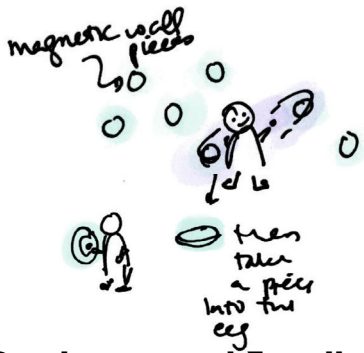 magnetic wall
pieces
then
take
a piece
into the
egg